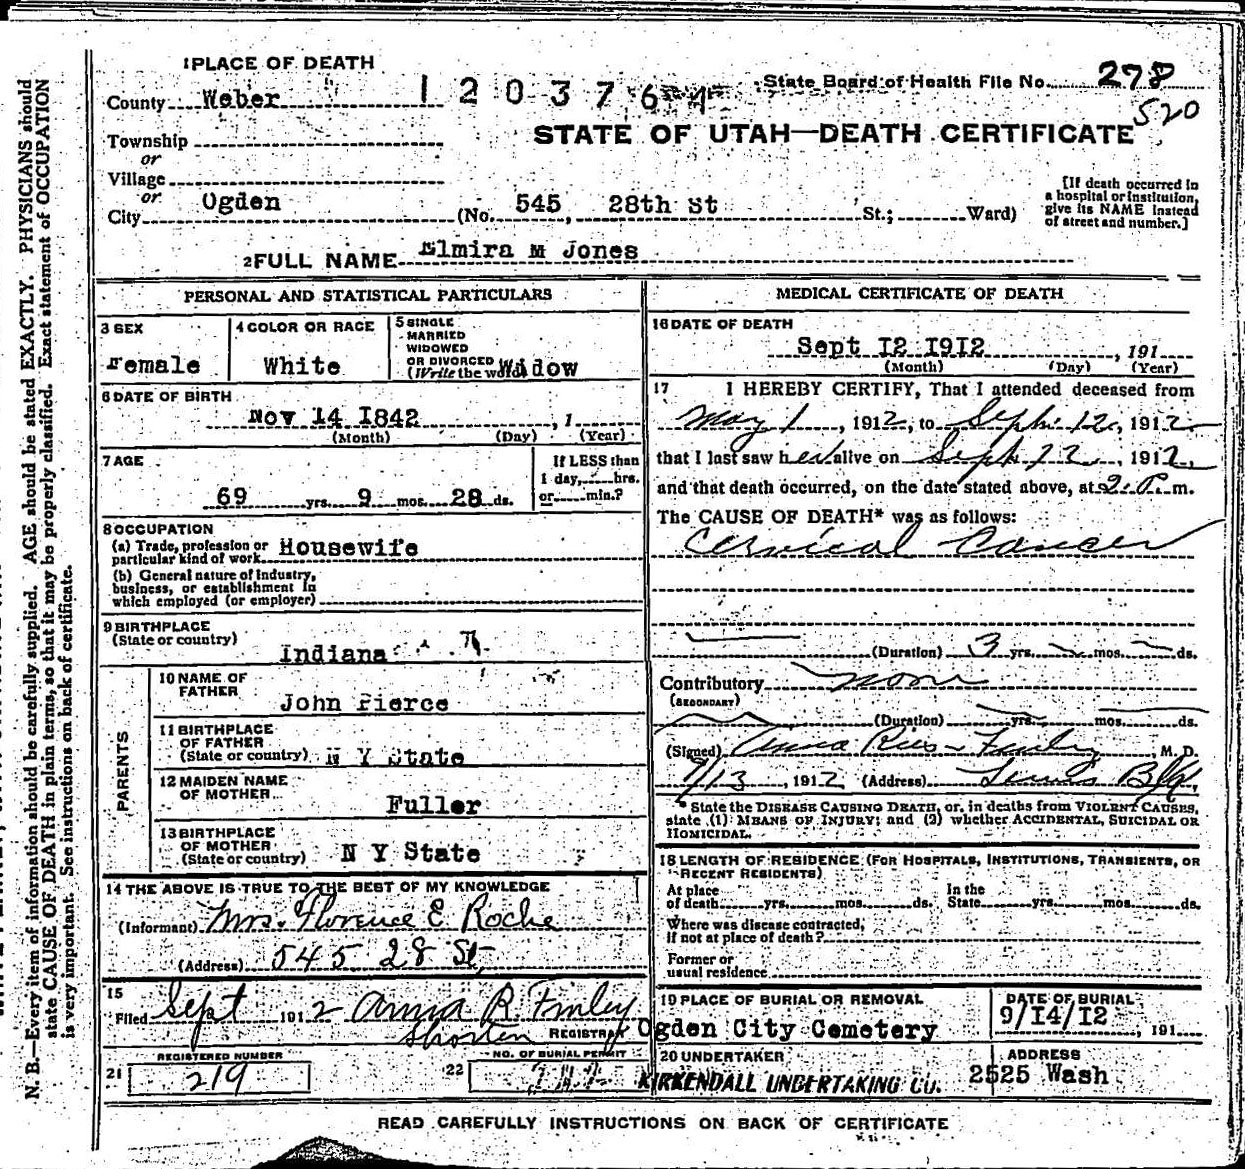 1 PLACE OF DEATH
County Weber
1 2 0 3 7 6
State Board of Health File No. 278
520
STATE OF UTAH—DEATH CERTIFICATE
Township
or
Village
or
City Ogden (No. 545, 28th St St.; Ward)
[If death occurred in a hospital or institution, give its NAME instead of street and number.]
2 FULL NAME Elmira M Jones
PERSONAL AND STATISTICAL PARTICULARS
3 SEX
Female
4 COLOR OR RACE
White
5 SINGLE
MARRIED
WIDOWED
OR DIVORCED
(Write the word) Widow
6 DATE OF BIRTH
Nov 14 I842, 1
(Month) (Day) (Year)
7 AGE
69 yrs. 9 mos. 28 ds.
If LESS than
1 day, hrs.
or min.?
8 OCCUPATION
(a) Trade, profession or
particular kind of work Housewife
(b) General nature of industry,
business, or establishment in
which employed (or employer)
9 BIRTHPLACE
(State or country)
Indiana
PARENTS
10 NAME OF
FATHER
John Pierce
11 BIRTHPLACE
OF FATHER
(State or country) N Y State
12 MAIDEN NAME
OF MOTHER
Fuller
13 BIRTHPLACE
OF MOTHER
(State or country) N Y State
14 THE ABOVE IS TRUE TO THE BEST OF MY KNOWLEDGE
(Informant) Mrs. Florence E. Roche
(Address) 545 28 St.
15
Filed Sept 1912 Anna R. Finley
REGISTRAR
REGISTERED NUMBER
21 219
NO. OF BURIAL PERMIT
22
MEDICAL CERTIFICATE OF DEATH
16 DATE OF DEATH
Sept I2 I9I2, 191
(Month) (Day) (Year)
17 I HEREBY CERTIFY, That I attended deceased from
May 1, 1912, to Sept. 12, 1912
that I last saw her alive on Sept 12, 1912,
and that death occurred, on the date stated above, at 2 P. m.
The CAUSE OF DEATH* was as follows:
Cervical Cancer
(Duration) 3 yrs. mos. ds.
Contributory none
(SECONDARY)
(Duration) yrs. mos. ds.
(Signed) Anna Ries Finley, M. D.
9/13, 1912 (Address) Lewis Blk,
* State the DISEASE CAUSING DEATH, or, in deaths from VIOLENT CAUSES,
state (1) MEANS OF INJURY; and (2) whether ACCIDENTAL, SUICIDAL OR
HOMICIDAL.
18 LENGTH OF RESIDENCE (FOR HOSPITALS, INSTITUTIONS, TRANSIENTS, OR
RECENT RESIDENTS)
At place
of death yrs. mos. ds.
In the
State yrs. mos. ds.
Where was disease contracted,
if not at place of death?
Former or
usual residence
19 PLACE OF BURIAL OR REMOVAL
Ogden City Cemetery
DATE OF BURIAL
9/14/12, 191
20 UNDERTAKER
KIRKENDALL UNDERTAKING CO.
ADDRESS
2525 Wash
READ CAREFULLY INSTRUCTIONS ON BACK OF CERTIFICATE
N. B.—Every item of information should be carefully supplied. AGE should be stated EXACTLY. PHYSICIANS should
state CAUSE OF DEATH in plain terms, so that it may be properly classified. Exact statement of OCCUPATION
is very important. See instructions on back of certificate.